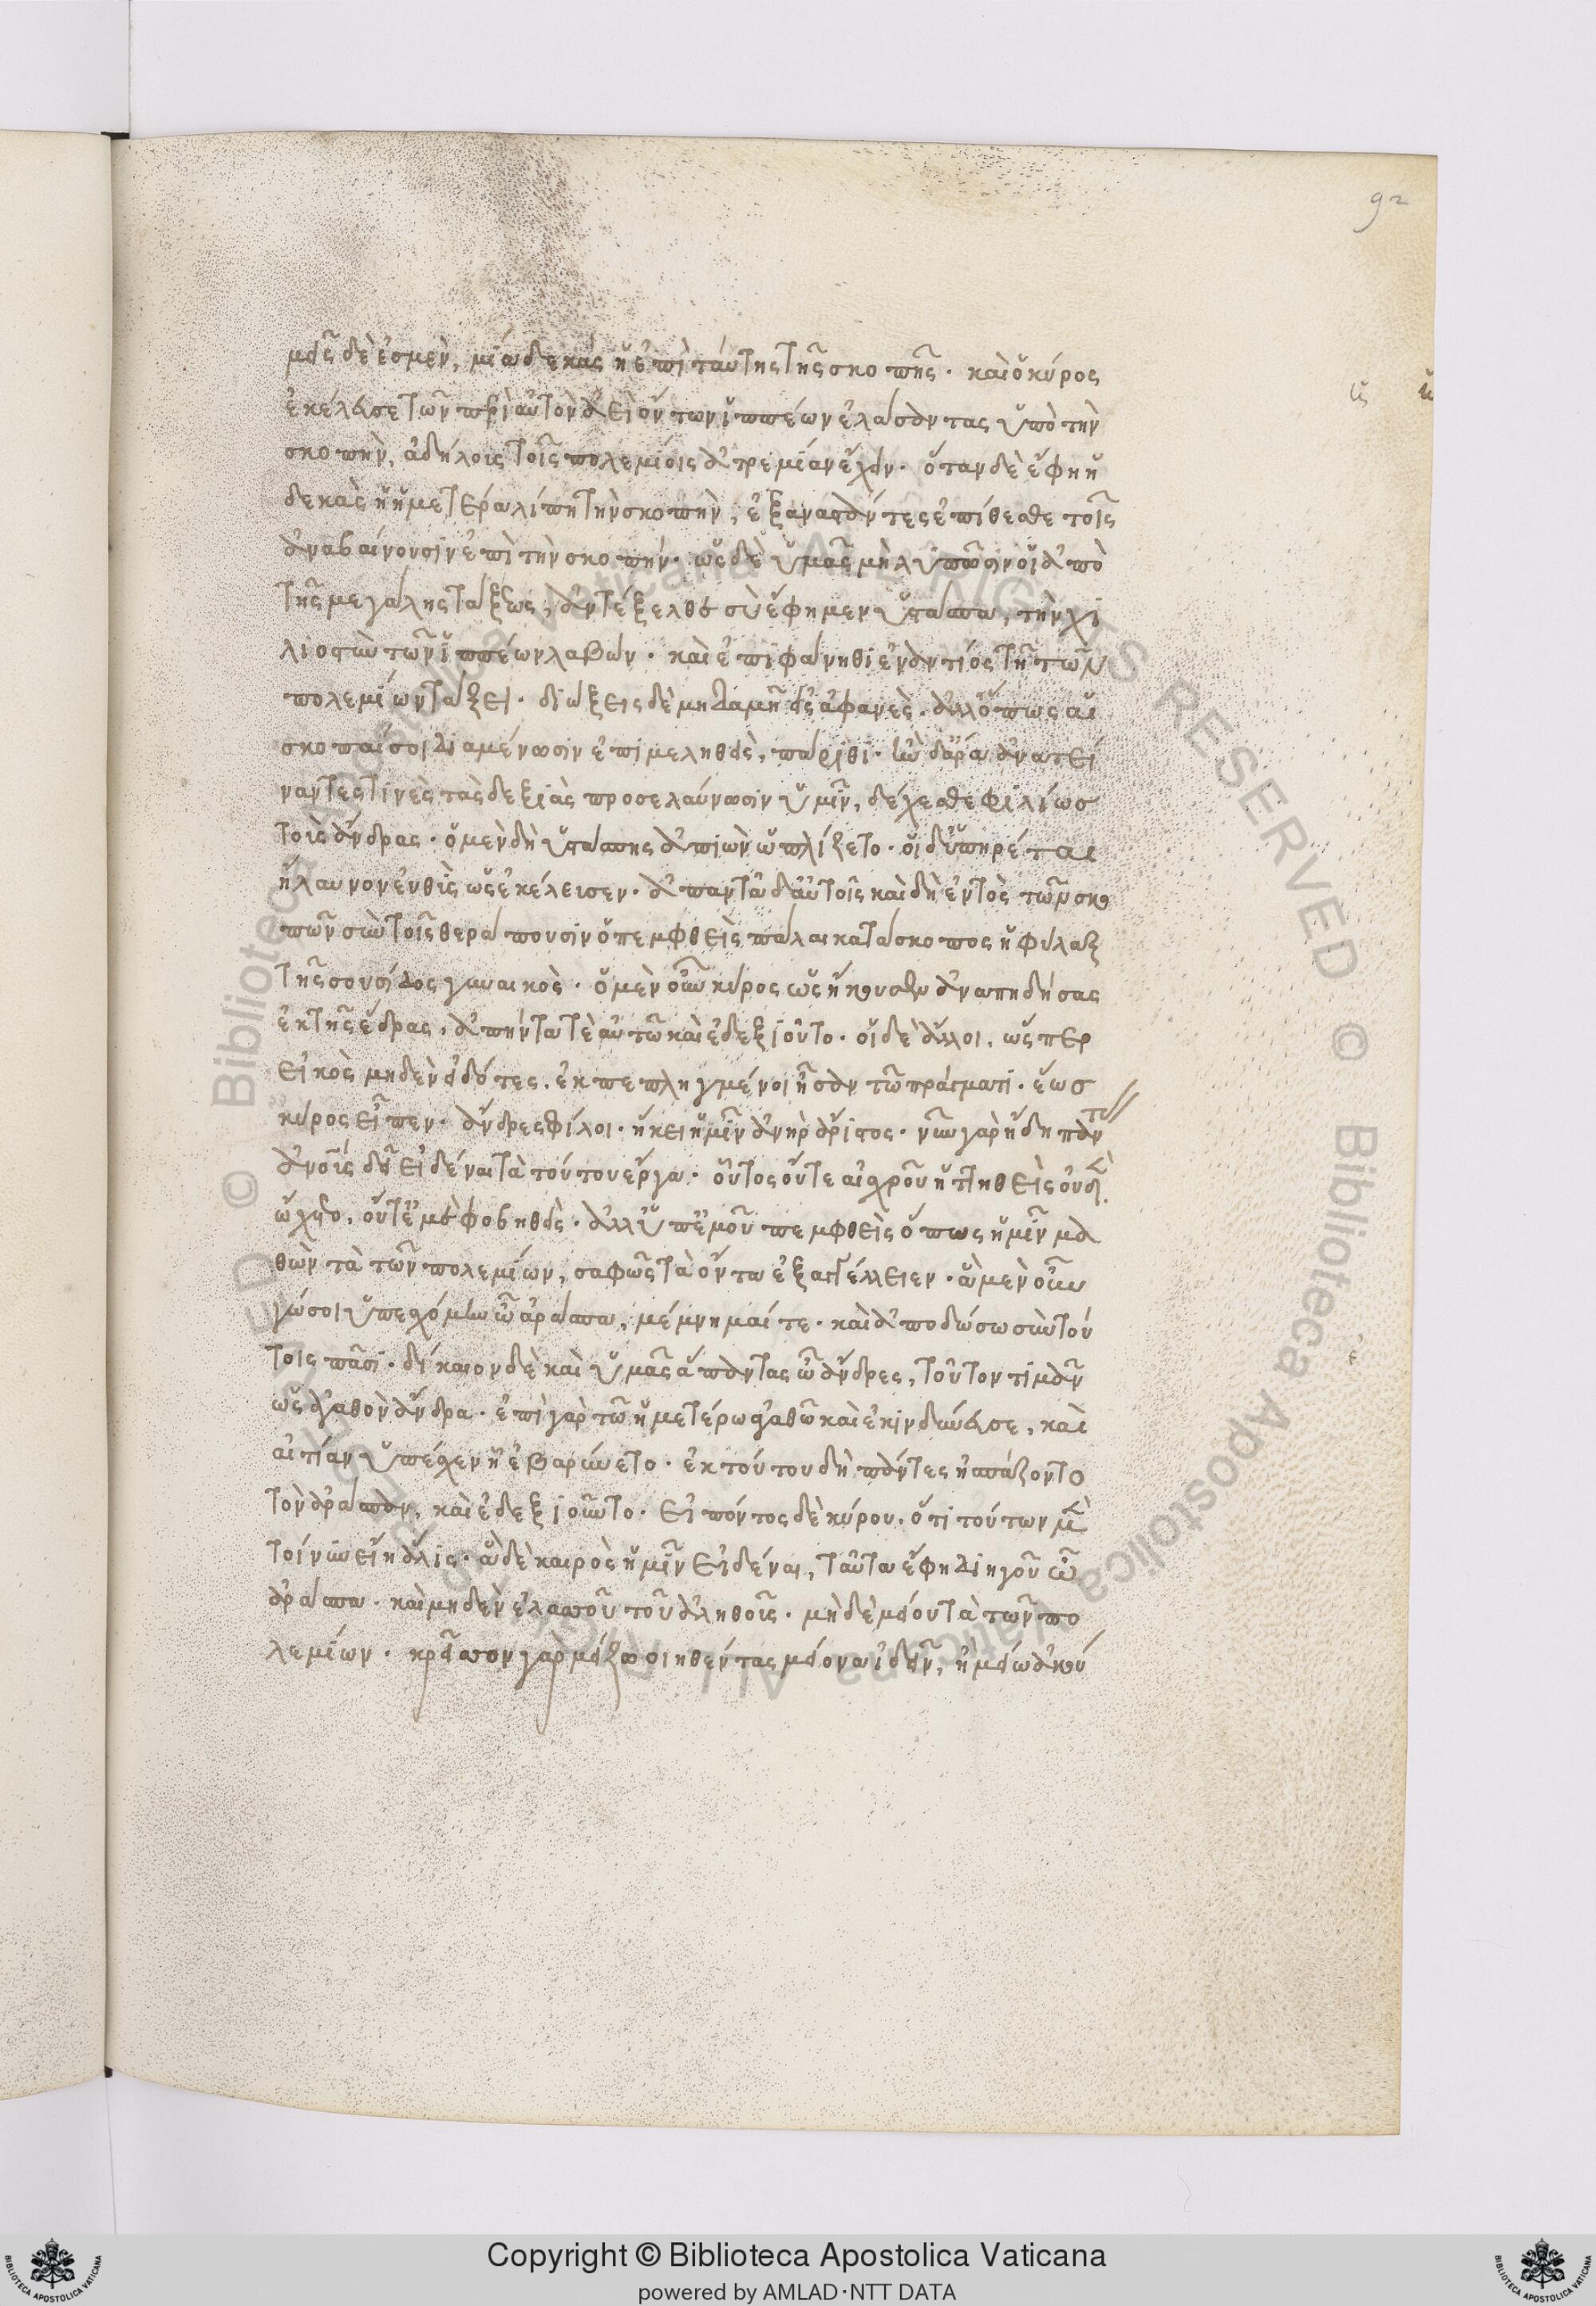 92
μεῖς δὲ ἐσμὲν, μία δεκὰς ἡ ἐπὶ ταύτης τῆς σκοπῆς. καὶ ὁ κύρος
ἐκέλευσε τῶν περὶ αὐτὸν ἀεὶ ὄντων ἱππέων ἐλάσαντας ὑπὸ τὴν
σκοπὴν, ἀδήλοις τοῖς πολεμίοις ἀτρεμίαν ἔχειν. ὅταν δὲ ἔφη ἡ
δεκὰς ἡ ἡμετέρα λίπη τὴν σκοπὴν, ἐξαναστάντες ἐπίθεσθε τοῖς
ἀναβαίνουσιν ἐπὶ τὴν σκοπήν. ὡς δὲ ὑμᾶς μὴ λυπῶσιν οἱ ἀπὸ
τῆς μεγάλης τάξεως, ἀντέξελθε σὺ ἔφη μεν ὑστάσπα, τὴν χι
λιοστὺν τῶν ἱππέων λαβών. καὶ ἐπιφάνηθι ἐναντίος τῇ τῶν
πολεμίων τάξει. διώξεις δὲ μηδαμῇ εἰς ἀφανὲς. ἀλλ' ὅπως αἱ
σκοπαί σοι διαμένωσιν ἐπιμεληθεὶς, πάριθι. ἢν δ' ἄρα ἀνατεί
ναντές τινὲς τὰς δεξιὰς προσελαύνωσιν ὑμῖν, δέχεσθε φιλίως
τοὺς ἄνδρας. ὁ μὲν δὴ ὑστάσπης ἀπιὼν ὡπλίζετο. οἱ δ' ὑπηρέται
ἤλαυνον ἐυθὺς ὡς ἐκέλευσεν. ἀπαντᾶ δ' αὐτοῖς καὶ δὴ ἐντὸς τῶν σκο
πῶν σὺν τοῖς θεράπουσιν ὁ πεμφθεὶς πάλαι κατάσκοπος ἡ φύλαξ
τῆς σουσίδος γυναικὸς. ὁ μὲν οὖν κύρος ὡς ἤκουσεν ἀναπηδήσας
ἐκ τῆς ἕδρας, ἀπήντα τὲ αὐτῶ καὶ ἐδεξιοῦτο. οἱ δὲ ἄλλοι, ὥσπερ
εἰκὸς μηδὲν εἰδότες, ἐκπεπληγμένοι ἦσαν τῶ πράγματι. ἕως
κύρος εἶπεν. ἄνδρες φίλοι. ἥκει ἡμῖν ἀνὴρ ἄριστος. νῦν γὰρ ἤδη πάν
τας
ἀνοῖς δεῖ εἰδέναι τὰ τούτου ἔργα. οὗτος οὔτε αἰσχροῦ ἡττηθεὶς οὐδὲν
ὤχετο, οὔτ' ἐμὲ φοβηθεὶς. ἀλλ' ὑπ' ἐμοῦ πεμφθεὶς ὅπως ἡμῖν μα
θὼν τὰ τῶν πολεμίων, σαφῶς τὰ ὄντα ἐξαγγέλλειεν. ἃ μὲν οὖν
ἐγώ σοι ὑπεσχόμην ὦ ἀράσπα, μέμνημαί τε. καὶ ἀποδώσω σὺν τού
τοις πᾶσι. δίκαιον δὲ καὶ ὑμᾶς ἅπαντας ὦ ἄνδρες, τοῦτον τιμᾶν
ὡς ἀγαθὸν ἄνδρα. ἐπὶ γὰρ τῶ ἡμετέρω ἀγαθῶ καὶ ἐκινδύνευσε, καὶ
αἰτίαν ὑπέσχεν ἧ ἐβαρύνετο. ἐκ τούτου δὴ πάντες ἠσπάζοντο
τὸν ἀράσπαν, καὶ ἐδεξιοῦντο. εἰπόντος δὲ κύρου, ὅτι τούτων μὲν
τοίνυν εἴη ἅλις. ἃ δὲ καιρὸς ἡμῖν εἰδέναι, ταῦτα ἔφη διηγοῦ ὦ
ἀράσπα. καὶ μηδὲν ἐλαττοῦ τοῦ ἀληθοῦς. μὴ δὲ μείου τὰ τῶν πο
λεμίων. κρεῖττον γὰρ μείζω οἰηθέντας μείονα ἰδεῖν, ἢ μείω ἀκού